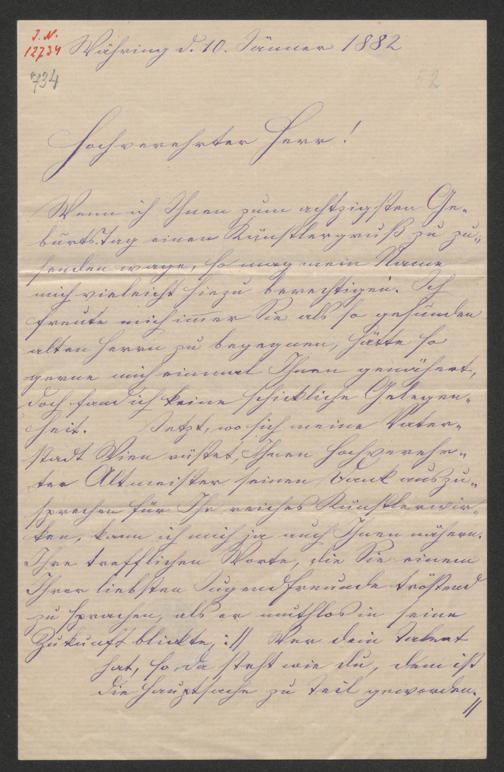 I. N.
12734
734
52
Währing d. 10. Jänner 1882
Hochverehrter Herr!
Wenn ich Ihnen zum achtzigsten Ge-
burtstag einen Künstlergruß zu zu-
senden wage, so mag mein Name
mich vieleicht hiezu berechtigen. Ich
freute mich immer Sie als so gesunden
alten Herrn zu begegnen, hätte so
gerne mich einmal Ihnen genähert,
doch fand ich keine schickliche Gelegen-
heit. Jetzt, wo sich meine Vater-
stadt Wien rüstet, Ihnen hochverehr-
ter Altmeister seinen Dank auszu-
sprechen für Ihr reiches Künstlerwir-
ken, kann ich mich ja auch Ihnen nähern.
Ihre trefflichen Worte, die Sie einem
Ihrer liebsten Jugendfreunde tröstend
zu sprachen, als er muthlos in seine
Zukunft blickte, :// Wer dein Talent
hat, so da steht wie du, dem ist
die Hauptsache zu Teil geworden. //